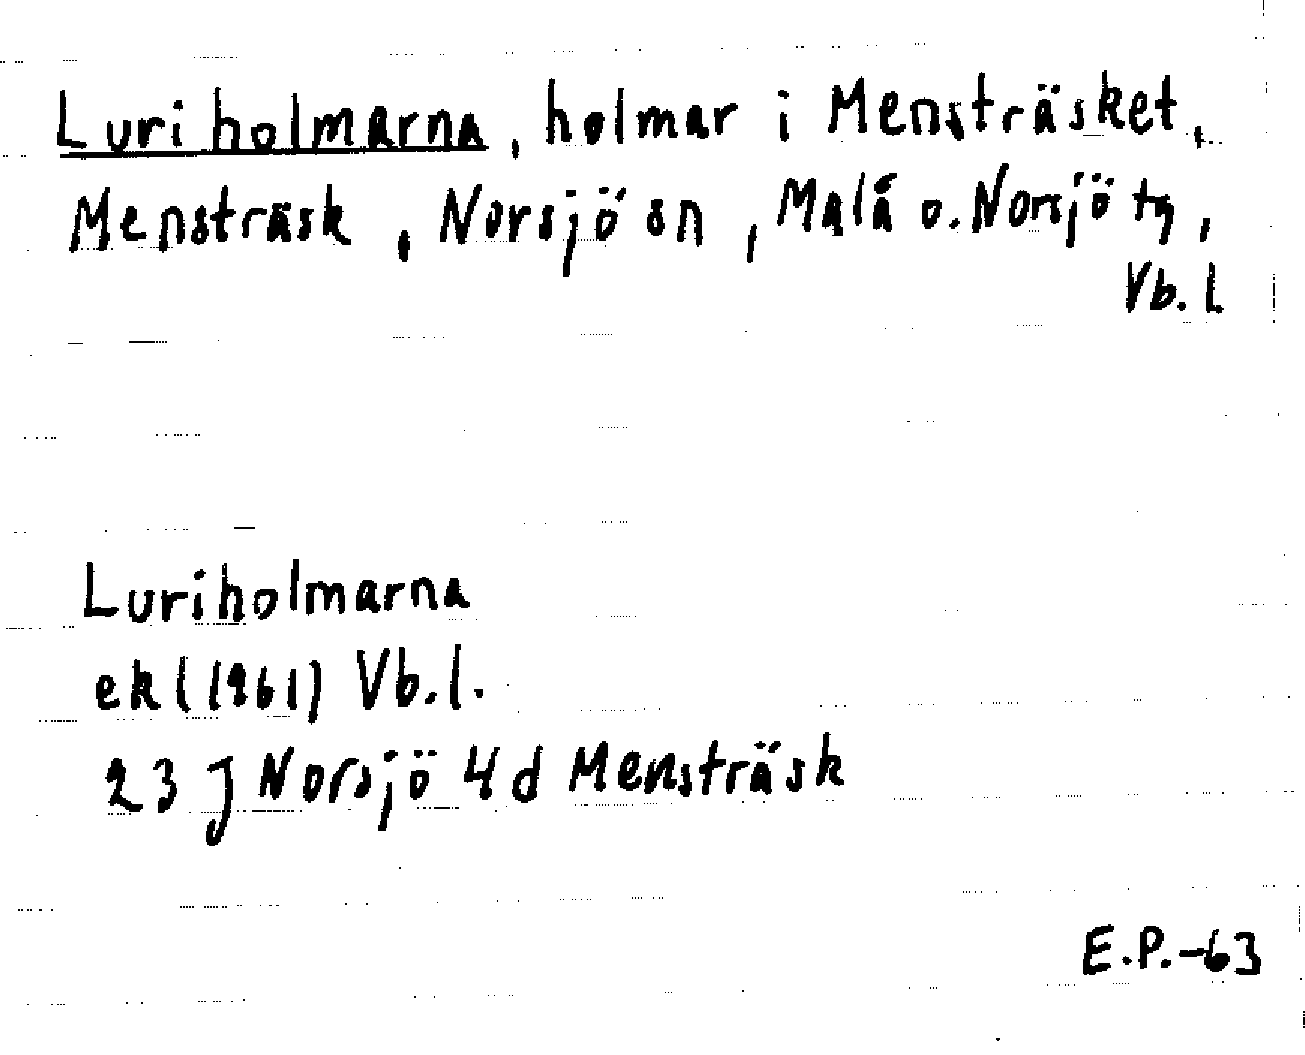 Luriholmarna, holmar i Mensträsket,
Mensträsk, Norsjö sn, Malå o. Norsjö tg,
Vb. l
Luriholmarna
ek (1961) Vb. l.
23 J Norsjö 4 d Mensträsk
E.P.-63